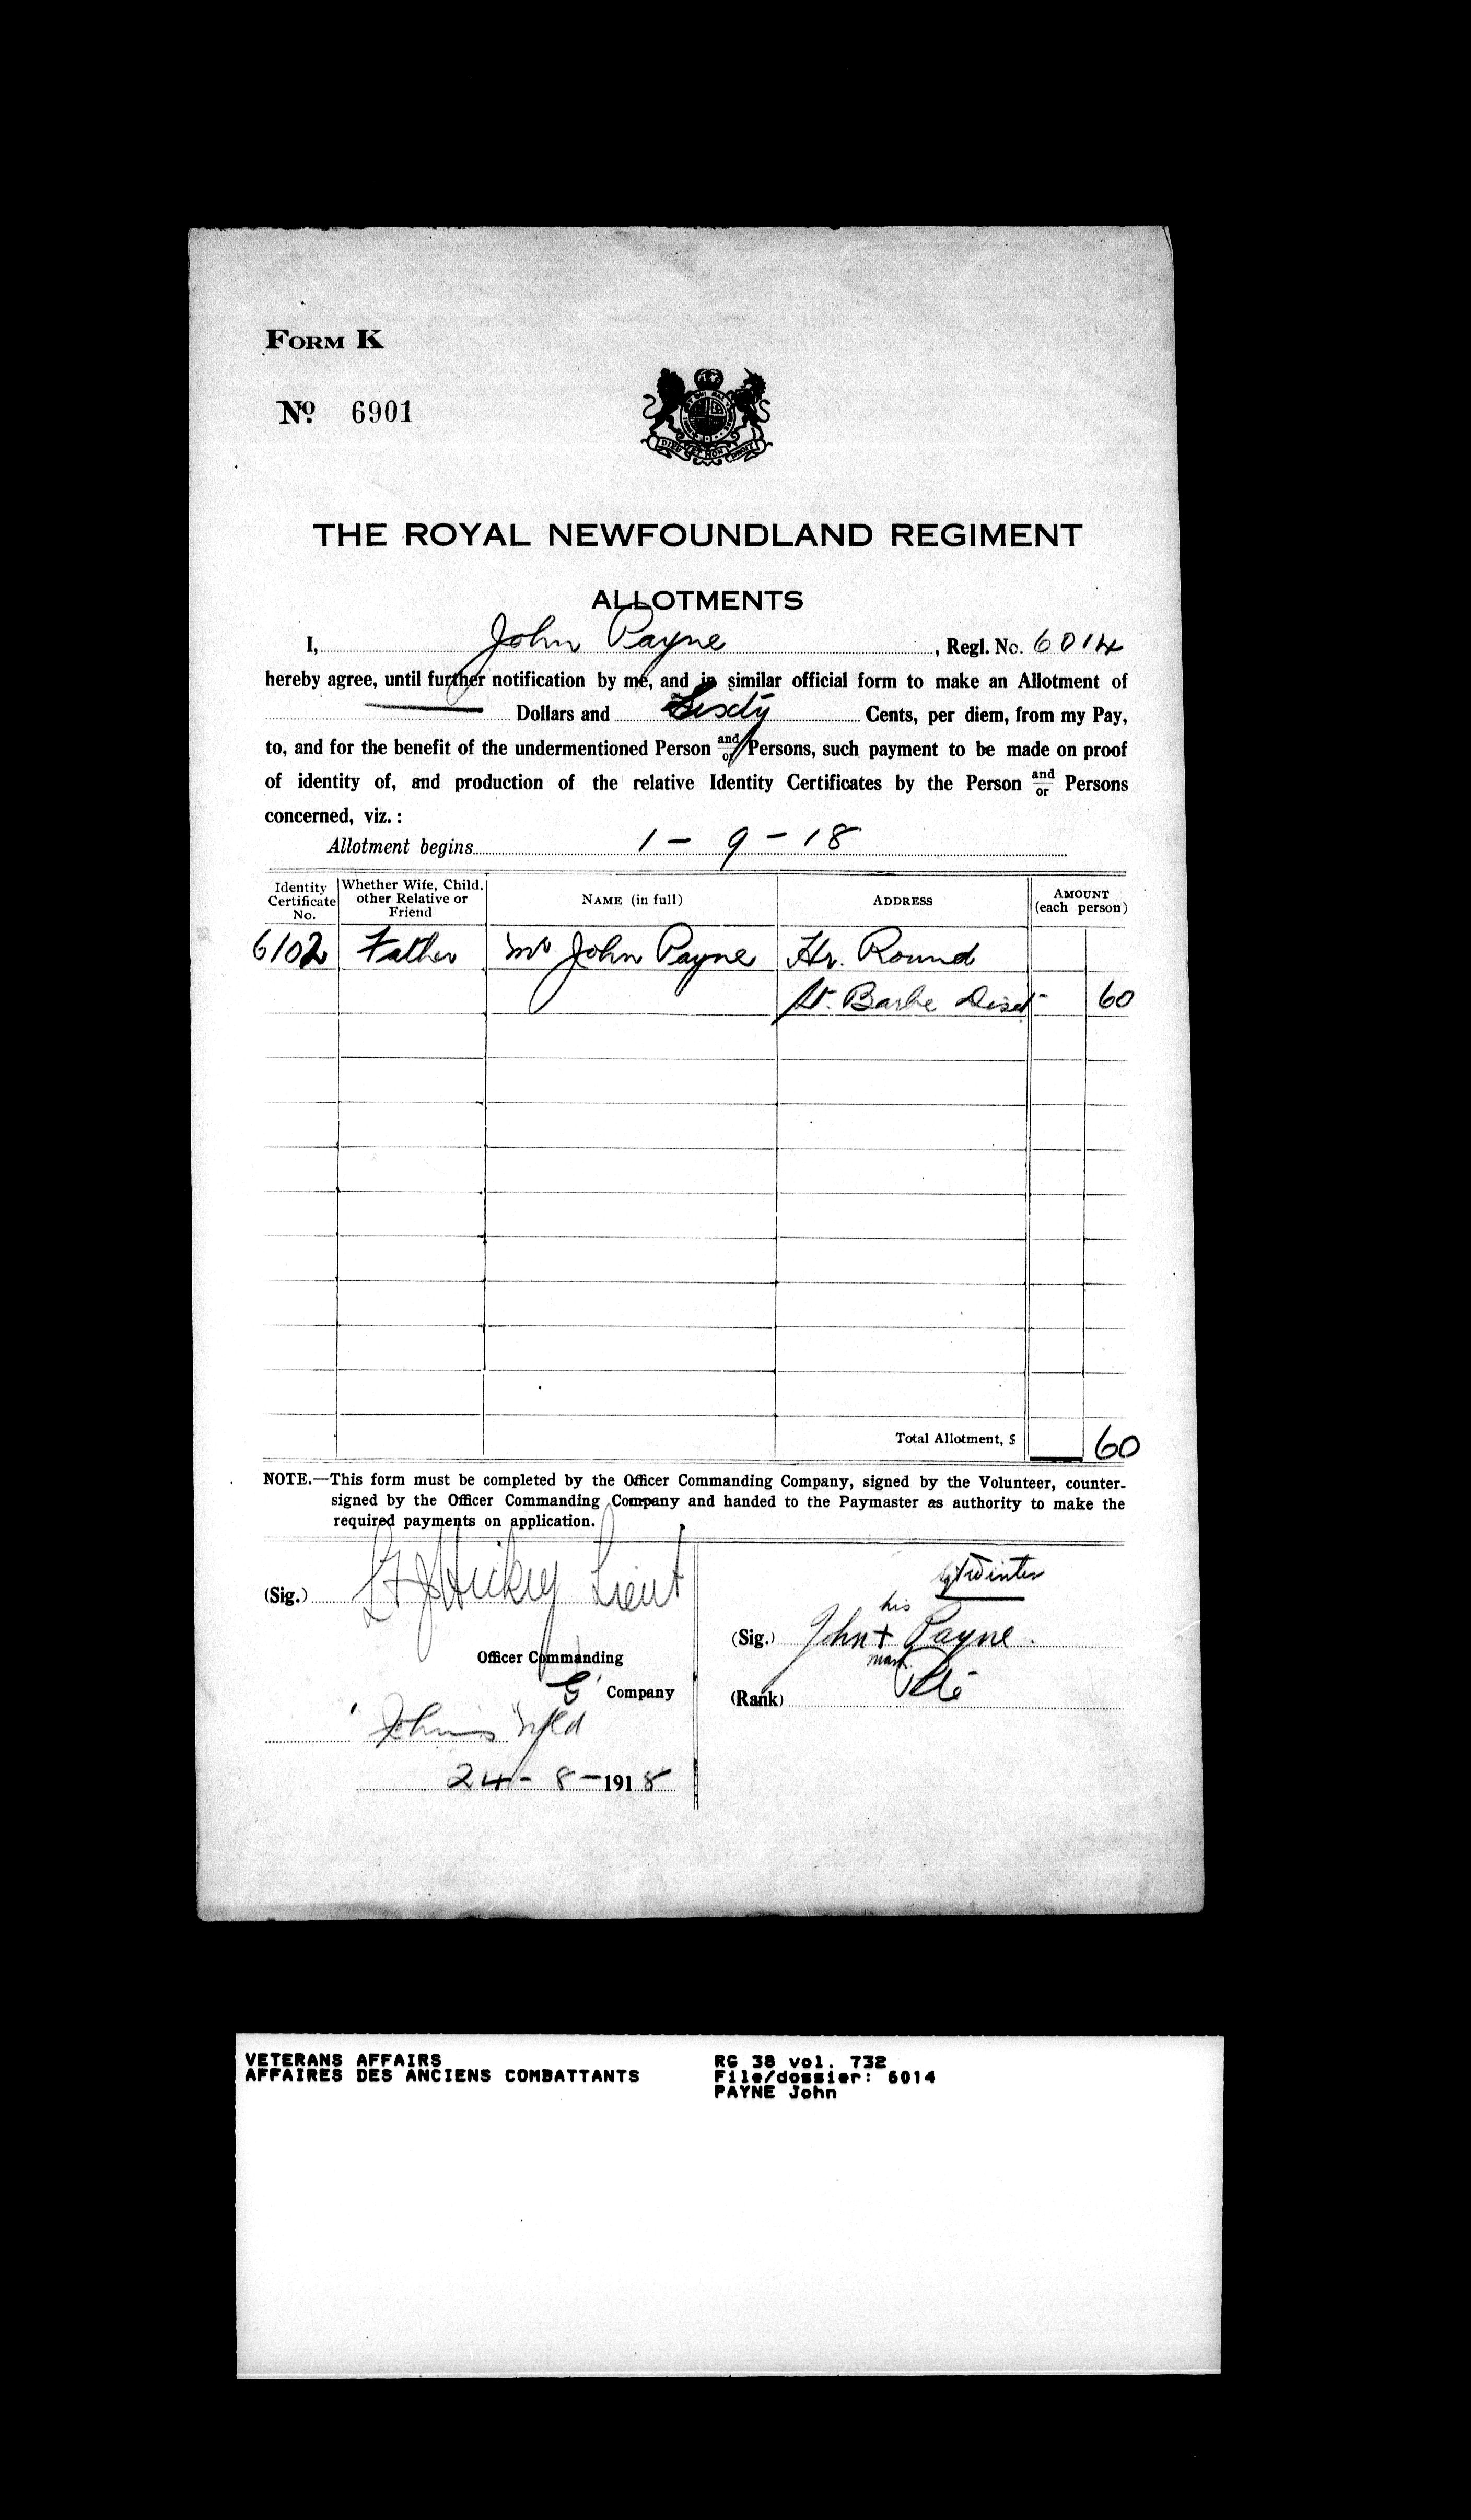 FORM K
No. 6901
DIEU ET MON DROIT
THE ROYAL NEWFOUNDLAND REGIMENT
ALLOTMENTS
I, John Payne, Regl. No. 6014
hereby agree, until further notification by me, and in similar official form to make an Allotment of
—— Dollars and Sixty Cents, per diem, from my Pay,
to, and for the benefit of the undermentioned Person and/or Persons, such payment to be made on proof
of identity of, and production of the relative Identity Certificates by the Person and/or Persons
concerned, viz.:
Allotment begins 1 - 9 - 18
Identity Certificate No. Whether Wife, Child, other Relative or Friend NAME (in full) ADDRESS AMOUNT (each person)
6102 Father Mr John Payne Hr. Round
St. Barbe Dist - 60
Total Allotment, $ — 60
NOTE.—This form must be completed by the Officer Commanding Company, signed by the Volunteer, counter-
signed by the Officer Commanding Company and handed to the Paymaster as authority to make the
required payments on application.
Winter
(Sig.) Hickey Lieut
his
(Sig.) John + Payne.
mark
Officer Commanding
G Company
(Rank) Pte
Johns Nfld
24 - 8 - 1918
VETERANS AFFAIRS
AFFAIRES DES ANCIENS COMBATTANTS
RG 38 vol. 732
File/dossier: 6014
PAYNE John